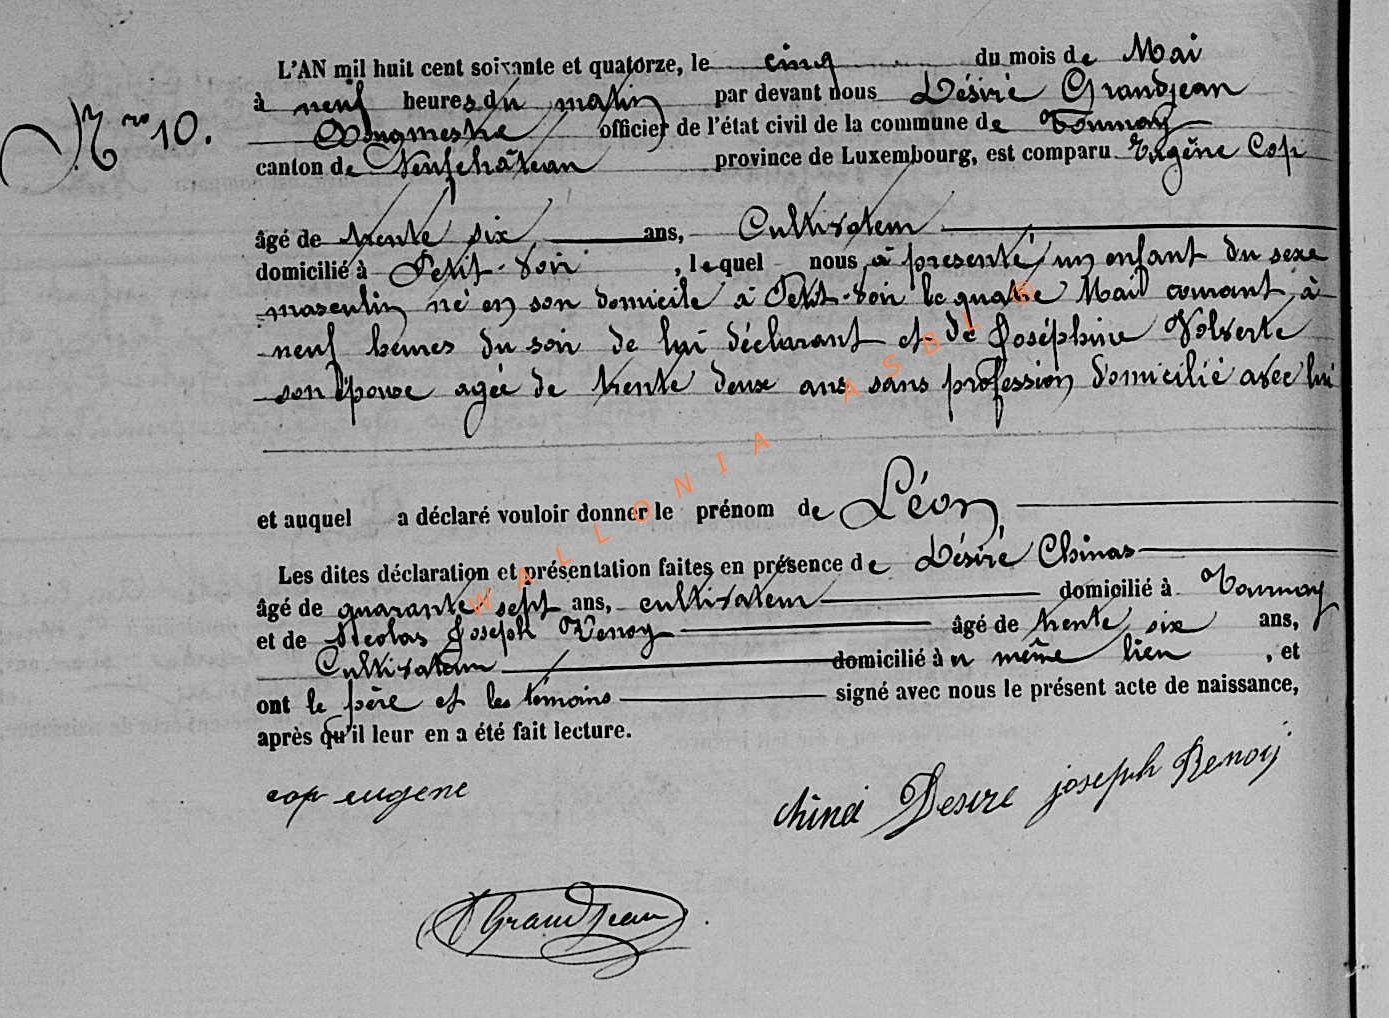 Nro 10.
L'AN mil huit cent soixante et quatorze, le cinq du mois de Mai
à neuf heures du matin par devant nous Désiré Grandjean
Bourgmestre officier de l'état civil de la commune de Tournay
canton de Neufchâteau province de Luxembourg, est comparu Eugène Cop
âgé de trente six ans, Cultivateur
domicilié à Petit-Voir, lequel nous a présenté un enfant du sexe
masculin né en son domicile à Petit-Voir le quatre Mai courant, à
neuf heures du soir de lui déclarant et de Joséphine Volverte
son épouse agée de trente deux ans sans profession domicilié avec lui
et auquel a déclaré vouloir donner le prénom de Léon,
Les dites déclaration et présentation faites en présence de Désiré Chinas
âgé de quarante sept ans, cultivateur domicilié à Tournay
et de Nicolas Joseph Renoy âgé de trente six ans,
Cultivateur domicilié à u même lieu, et
ont le père et les témoins signé avec nous le présent acte de naissance,
après qu'il leur en a été fait lecture.
cop eugene
Desire joseph Renoy
Grandjean
WALLONIA ASBL ©